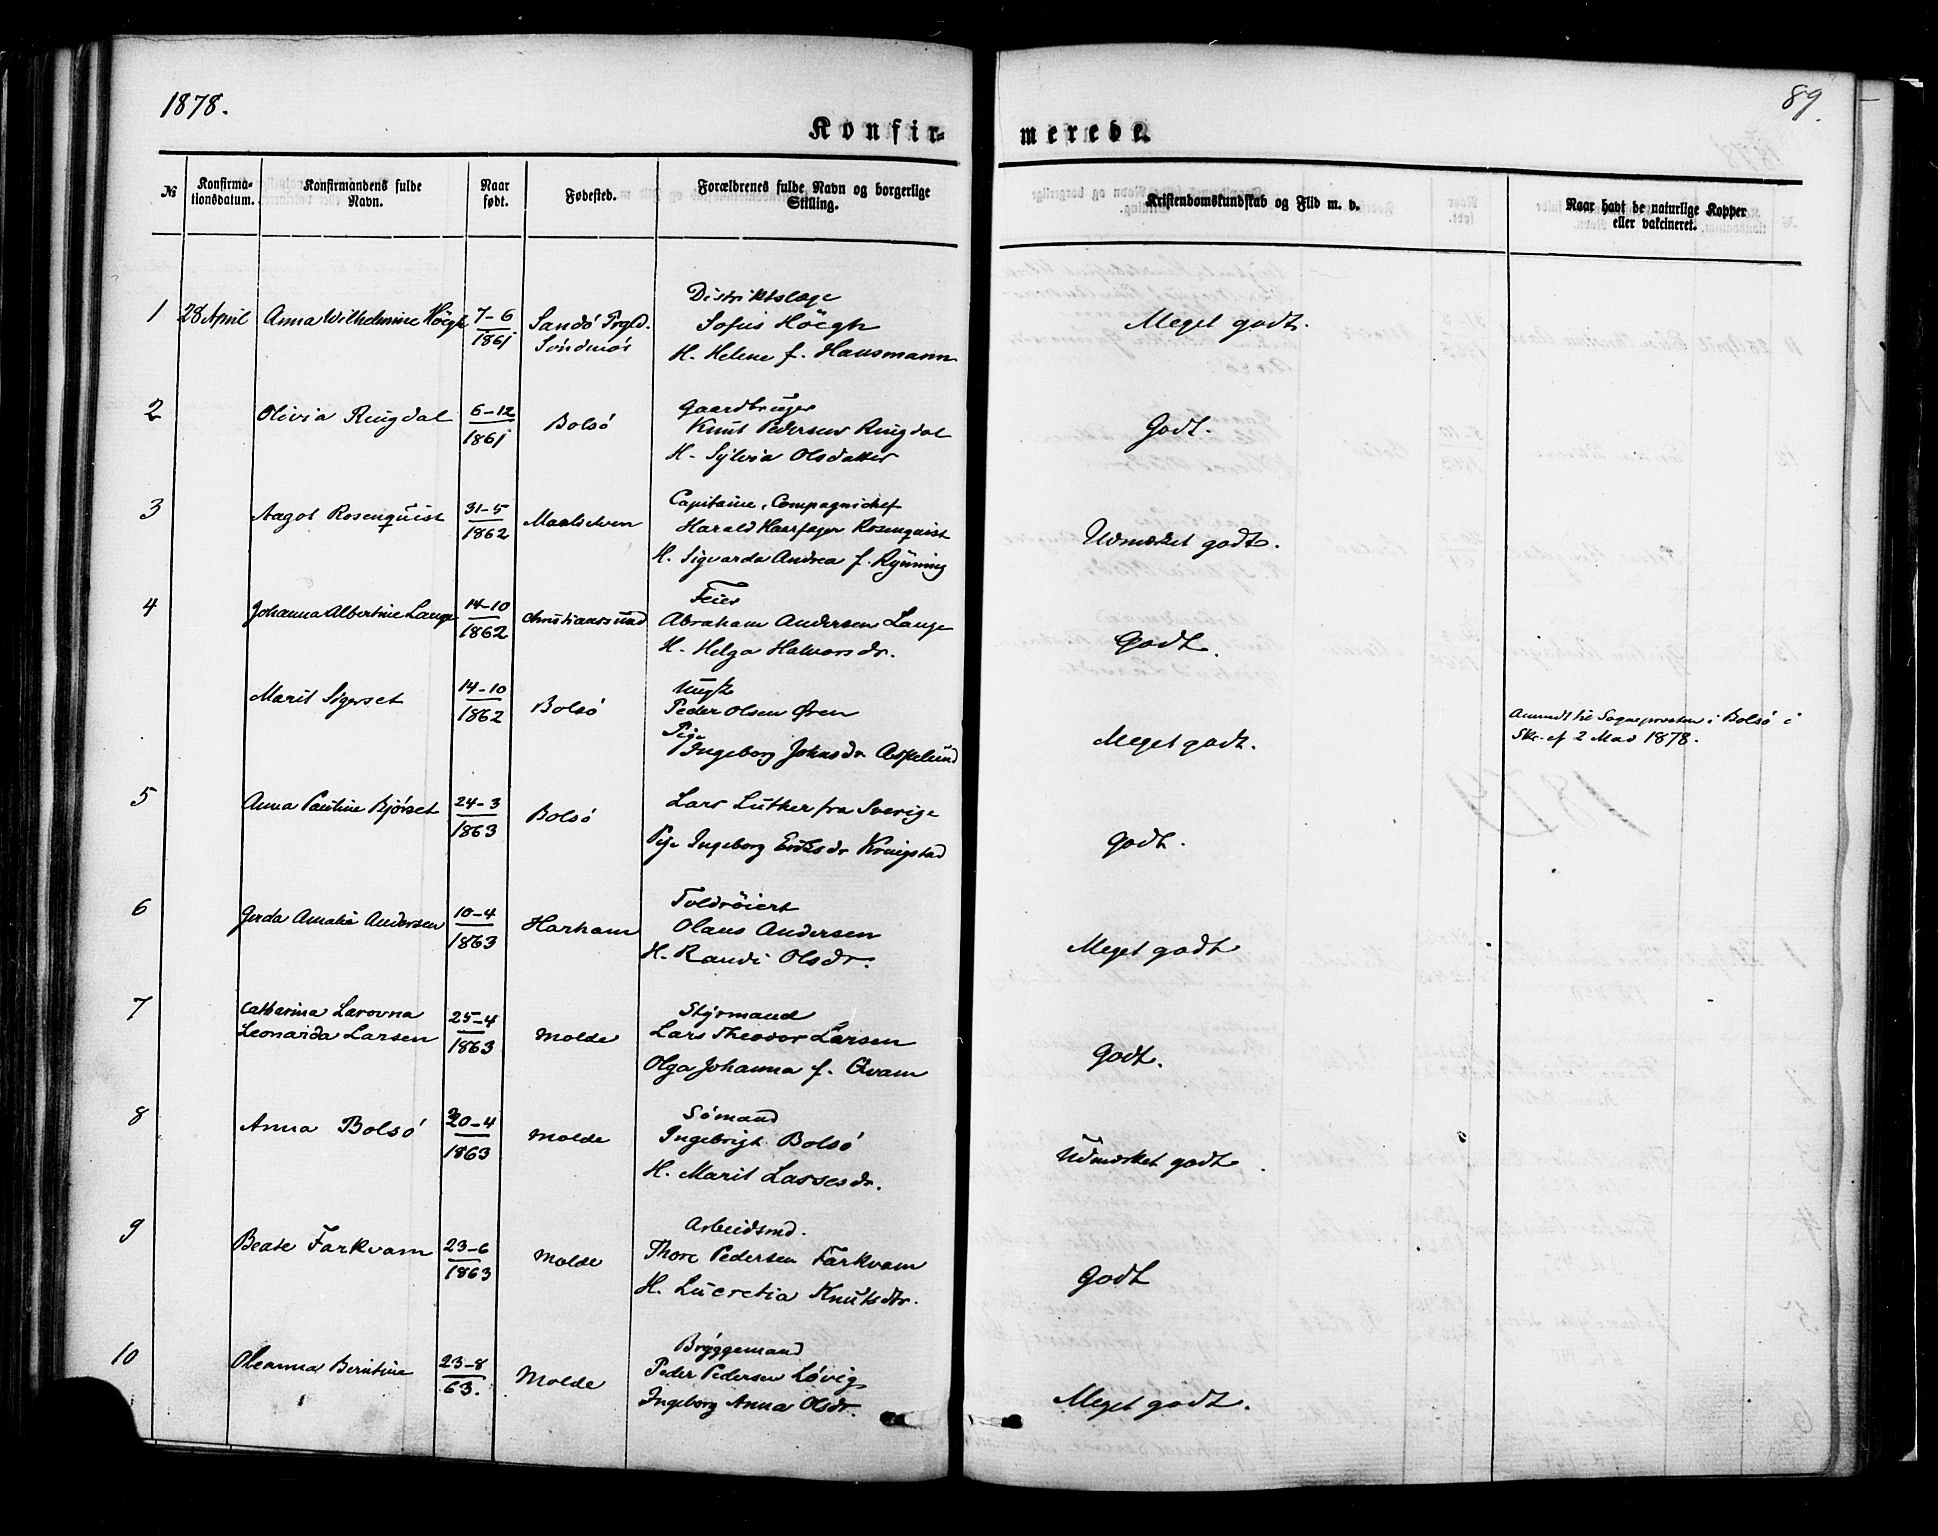 1878.
89.
Konfir-
merede.
№
Konfirma-
tionsdatum.
Konfirmandens fulde
Navn.
Naar
født.
Fødested.
Forældrenes fulde Navn og borgerlige
Stilling.
Kristendomskundskab og Flid m. v.
Naar havt de naturlige Kopper
eller vakcineret.
1 28 April Anna Wilhelmine Höegh 7-6
1861
Sandö Prgld.
Söndmör
Distriktslæge
Sofus Höegh
H. Helene f. Hausmann
Meget godt.
2 Olivia Ringdal 6-12
1861
Bolsó
Gaardbruger
Knut Pedersen Ringdal
H. Sylvia Olsdatter
Godt.
3 Aagot Rosenquist 31-5
1862
Maalselven
Capitaine, Compagnichef
Harald Haarfager Rosenquist
H. Sigvarda Andrea f. Rynning
Udmærket godt.
4 Johanna Albertine Lange 14-10
1862
Christianssund
Feier
Abraham Andersen Lange
H. Helga Halvorsdr.
Godt.
Marit Sigerset 14-10
1862
Bolsó
Ungk
Peder Olsen Øren
Pige
Ingeborg Johnsdr Aspelund
Meget godt.
Anmdt til Sognepresten i Bolsó i
Skr. af 2 Mai 1878.
5 Anna Pauline Bjórset 24-3
1863
Bolsó
Lars Luther fra Sverige
Pige Ingeborg Eriksdr Kringstad
godt.
6 Gerda Amalie Andersen 10-4
1863
Harham
Toldróiert
Olaus Andersen
H. Randi Olsdr.
Meget godt
7 Catharina Lavovna
Leonarda Larsen
25-4
1863
Molde
Styrmand
Lars Theodor Larsen
Olga Johanna f. Qvam
Godt.
8 Anna Bolsó 20-4
1863
Molde
Sómand
Ingebrigt Bolsó
H. Marit Lassesdr.
Udmærket godt.
9 Beate Farkvam 23-6
1863
Molde
Arbeidsmd.
Thore Pedersen Farkvam
H. Lucretia Knutsdtr.
Godt
10 Oleanna Berntine 23-8
63.
Molde
Bryggemand
Peder Pedersen Lóvig
Ingeborg Anna Olsdr.
Meget godt.